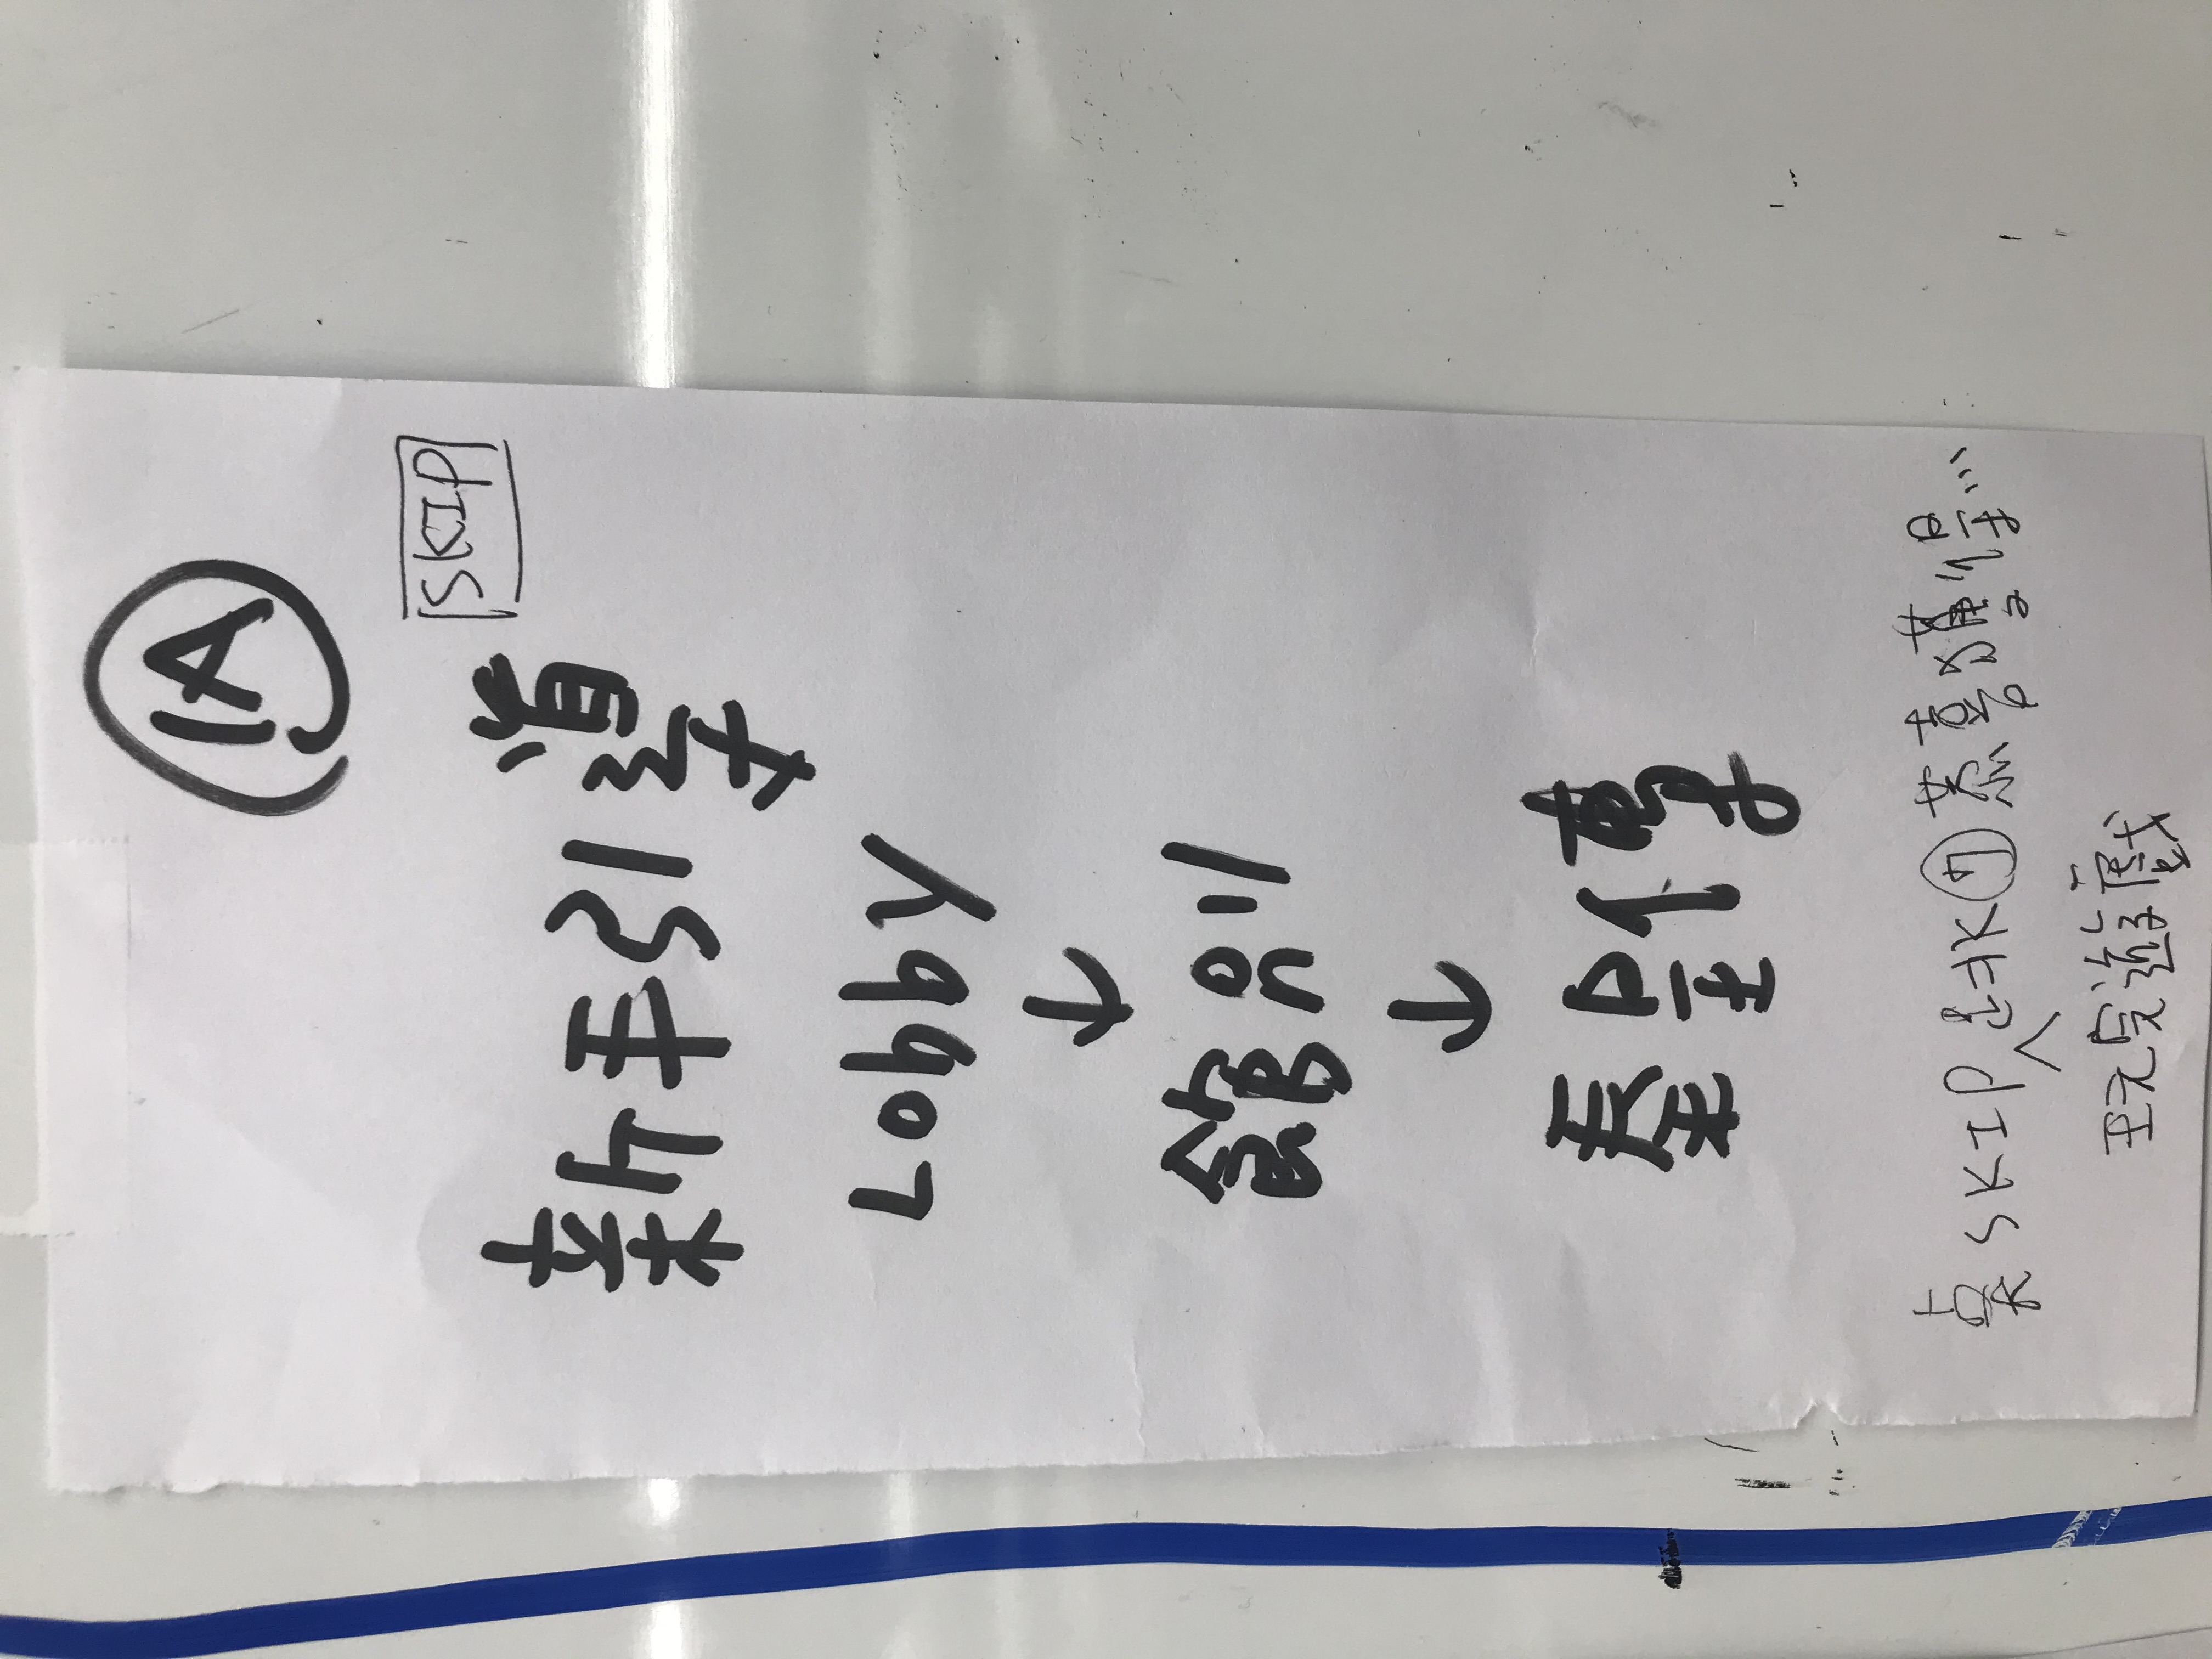 1A
SKIP
新手引導
Lobby
↓
館別
↓
秦皇傳
點SKIP 跳⑦恭喜獲得...
玩完遊戲